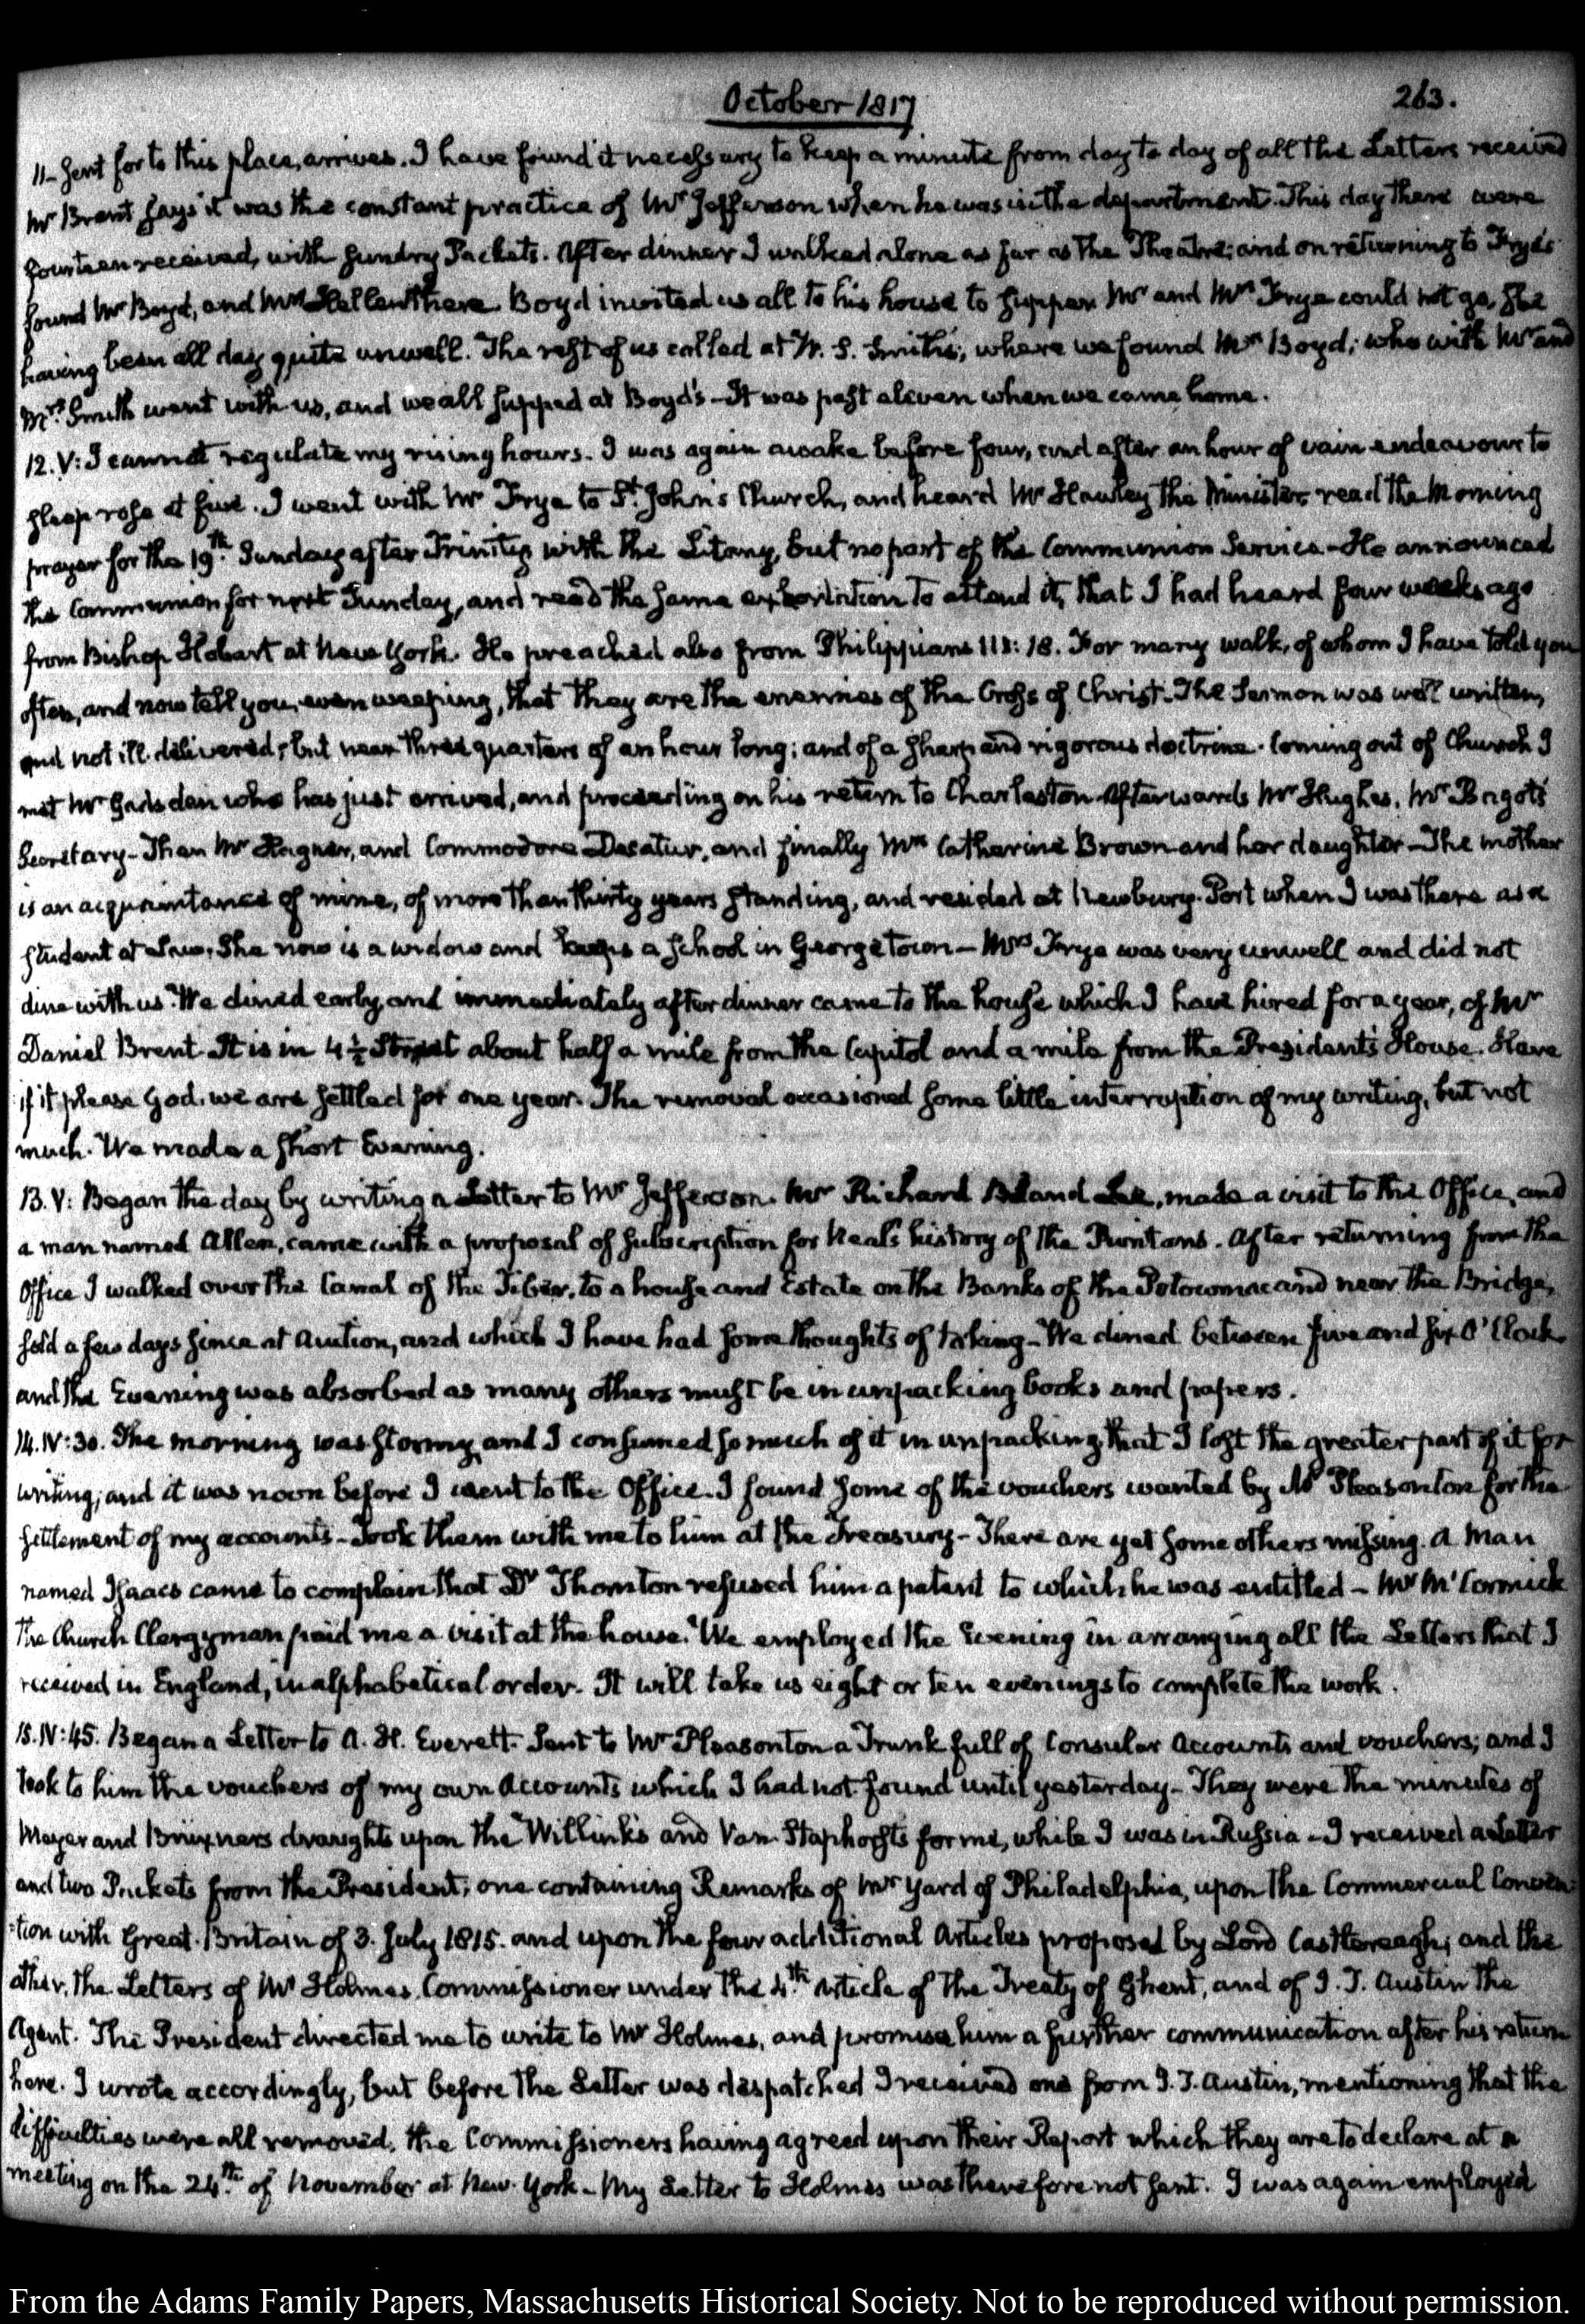 October 1817
263.
11- sent for to this place, arrives. I have found it necessary to keep a minute from day to day of all the Letters received
Mr Brent says it was the constant practice of Mr Jefferson when he was in the department. This day there were
fourteen received, with sundry Packets. After dinner I walked alone as far as the Theatre; and on returning to Frye's
found Mr Boyd, and Mrs Hellen there. Boyd invited us all to his house to supper. Mr and Mrs Frye could not go, she
having been all day quite unwell. The rest of us called at W. S. Smith's, where we found Mrs Boyd; who with Mr and
Mrs Smith went with us, and we all supped at Boyd's - It was past eleven when we came home.
12. V: I cannot regulate my rising hours. I was again awake before four, and after an hour of vain endeavour to
sleep rose at five. I went with Mr Frye to St. John's Church, and heard Mr Hawley the Minister read the Morning
prayer for the 19th. Sunday after Trinity with the Litany, but no part of the Communion Service - He announced
the Communion for next Sunday, and read the same exhortation to attend it, that I had heard four weeks ago
from Bishop Hobart at New York. He preached also from Philippians III: 18. For many walk, of whom I have told you
often, and now tell you, even weeping, that they are the enemies of the Cross of Christ. The Sermon was well written,
and not ill delivered; but near three quarters of an hour long; and of a sharp and rigorous doctrine. Coming out of Church I
met Mr Gadsden who has just arrived, and proceeding on his return to Charleston Afterwards Mr Hughes, Mr Bagot's
Secretary - Then Mr Hagner, and Commodore Decatur, and finally Mrs Catherine Brown and her daughter - The mother
is an acquaintance of mine, of more than thirty years standing, and resided at Newbury-Port when I was there as a
student at Law. She now is a widow and keeps a school in Georgetown - Mrs Frye was very unwell and did not
dine with us. We dined early, and immediately after dinner came to the house which I have hired for a year, of Mr
Daniel Brent. It is in 4½ Street about half a mile from the Capitol and a mile from the President's House. Here
if it please God, we are settled for one year. The removal occasioned some little interruption of my writing, but not
much. We made a short Evening.
13. V: Began the day by writing a Letter to Mr Jefferson. Mr Richard Bland Lee, made a visit to the Office, and
a man named Allen, came with a proposal of subscription for Neal's history of the Puritans. After returning from the
Office I walked over the Canal of the Tiber, to a house and Estate on the Banks of the Potowmac and near the Bridge,
sold a few days since at Auction, and which I have had some thoughts of taking - We dined between five and six O'Clock
and the Evening was absorbed as many others must be in unpacking books and papers.
14. IV:30. The morning was stormy, and I consumed so much of it in unpacking, that I lost the greater part of it for
writing; and it was noon before I went to the Office. I found some of the vouchers wanted by Mr Pleasonton for the
settlement of my accounts - Took them with me to him at the Treasury - There are yet some others missing. A man
named Isaacs came to complain that Dr Thornton refused him a patent to which he was entitled - Mr McCormick
the Church Clergyman paid me a visit at the house. We employed the Evening in arranging all the Letters that I
received in England, in alphabetical order. It will take us eight or ten evenings to complete the work.
15. IV:45. Began a Letter to A. H. Everett. Sent to Mr Pleasonton a Trunk full of Consular Accounts and vouchers; and I
took to him the vouchers of my own Accounts which I had not found until yesterday - They were the minutes of
Meyer and Bruxners draughts upon the Willinks and Van Staphorsts for me, while I was in Russia - I received a Letter
and two Packets from the President; one containing Remarks of Mr Yard of Philadelphia, upon the Commercial Conven-
-tion with Great-Britain of 3. July 1815. and upon the four additional Articles proposed by Lord Castlereagh; and the
other, the Letters of Mr Holmes, Commissioner under the 4th. Article of the Treaty of Ghent, and of J. T. Austin the
Agent. The President directed me to write to Mr Holmes, and promise him a further communication after his return
here. I wrote accordingly, but before the Letter was despatched I received one from J. T. Austin, mentioning that the
difficulties were all removed, the Commissioners having agreed upon their Report which they are to declare at a
meeting on the 24th. of November at New-York - My Letter to Holmes was therefore not sent. I was again employed
From the Adams Family Papers, Massachusetts Historical Society. Not to be reproduced without permission.